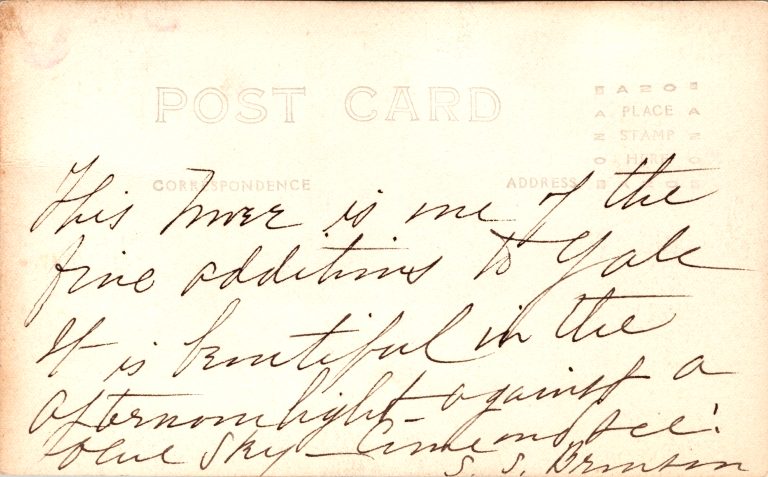 POST CARD
AZO
PLACE
STAMP
HERE
AZO
CORRESPONDENCE
ADDRESS
This Tower is one of the
fine additions to Yale
It is beautiful in the
afternoon light against a
blue sky - Come and see!
S. S.